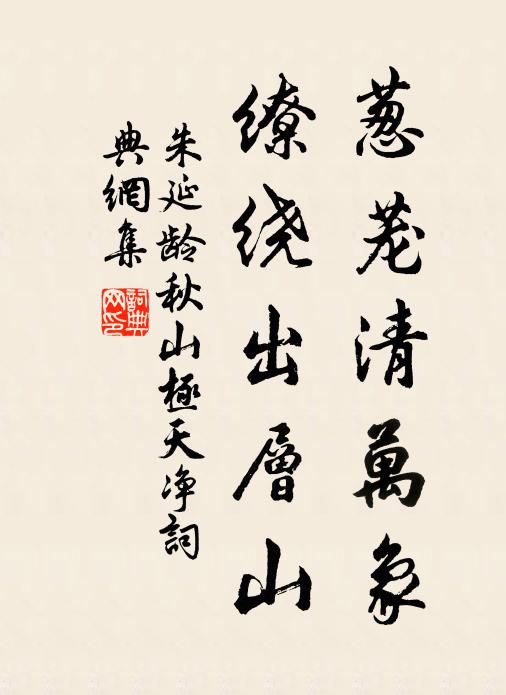 葱茏清萬象
缭绕出層山
朱延龄秋山極天净詞
典網集
詞典網印